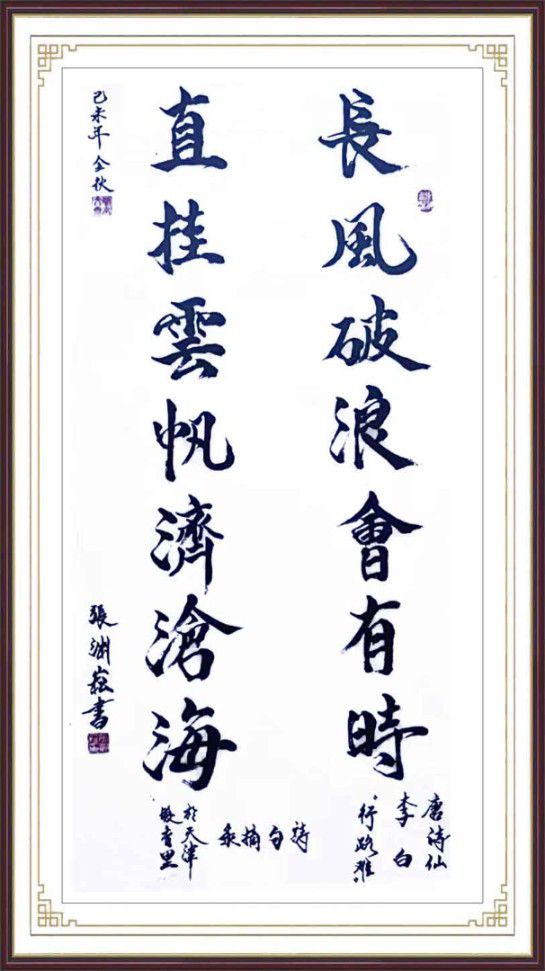 長風破浪會有時
直挂雲帆濟滄海
唐诗仙
李白
“行路难”
詩句摘录
於天津
里
己未年 金秋
張渊 書